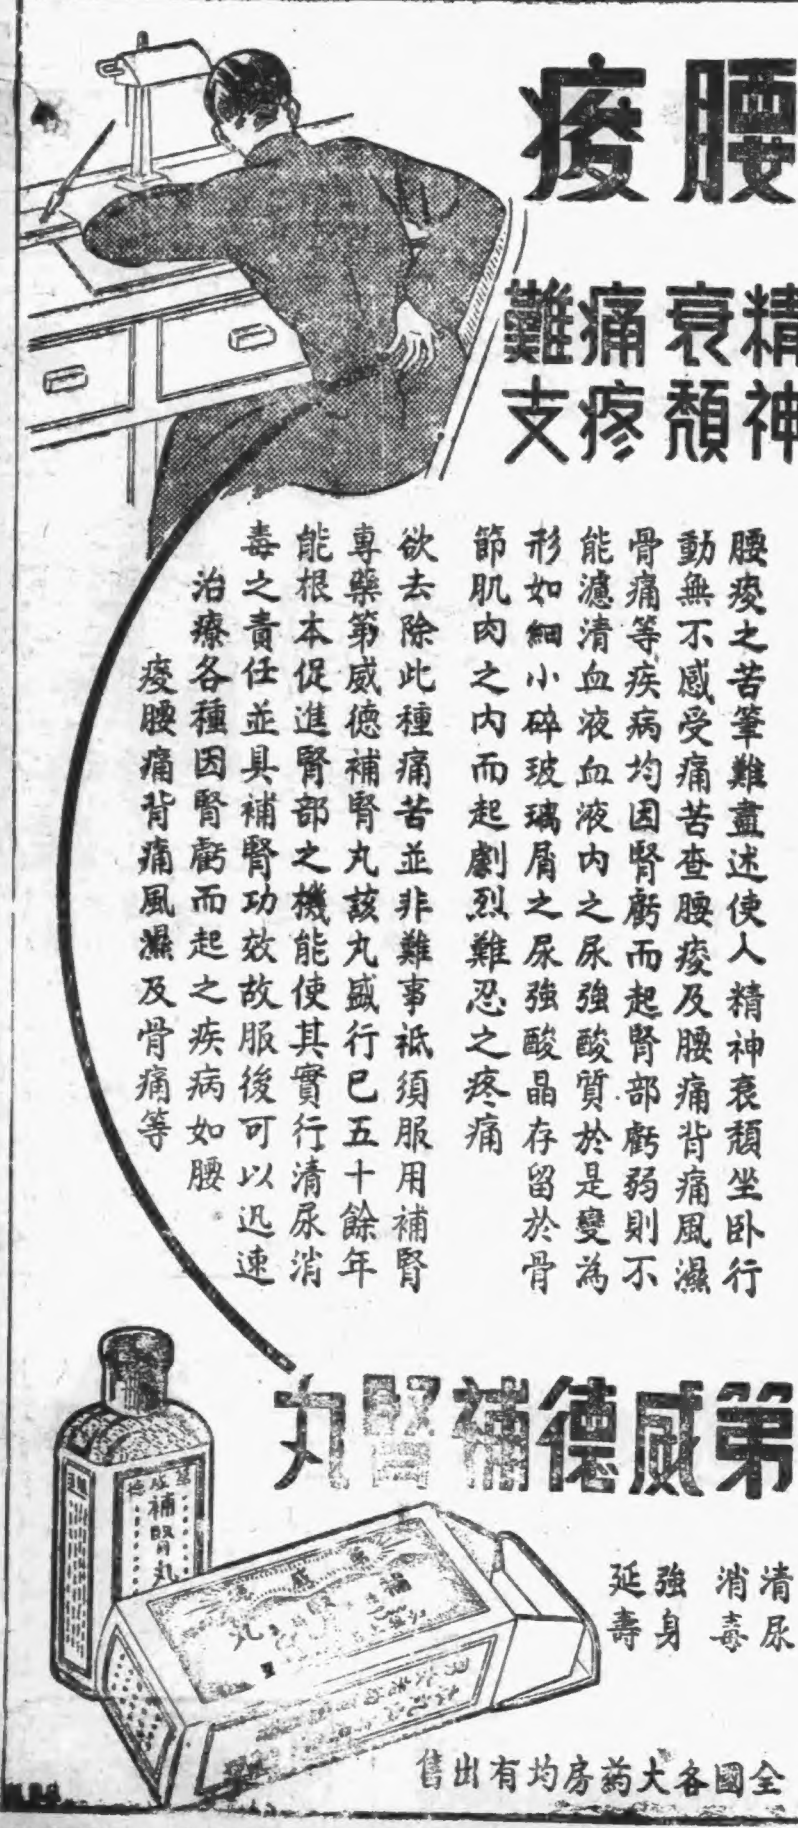 腰痠
精神
衰頹
痛疼
難支
腰痠之苦筆難盡述使人精神衰頹坐卧行
動無不感受痛苦查腰痠及腰痛背痛風濕
骨痛等疾病均因腎虧而起腎部虧弱則不
能濾清血液血液內之尿強酸質於是變為
形如細小碎玻璃屑之尿強酸晶存留於骨
節肌肉之內而起劇烈難忍之疼痛
欲去除此種痛苦並非難事祗須服用補腎
專藥第威德補腎丸該丸盛行已五十餘年
能根本促進腎部之機能使其實行清尿消
毒之責任並具補腎功效故服後可以迅速
治療各種因腎虧而起之疾病如腰
痠腰痛背痛風濕及骨痛等
第威德補腎丸
清尿
消毒
強身
延壽
全國各大葯房均有出售
補腎丸